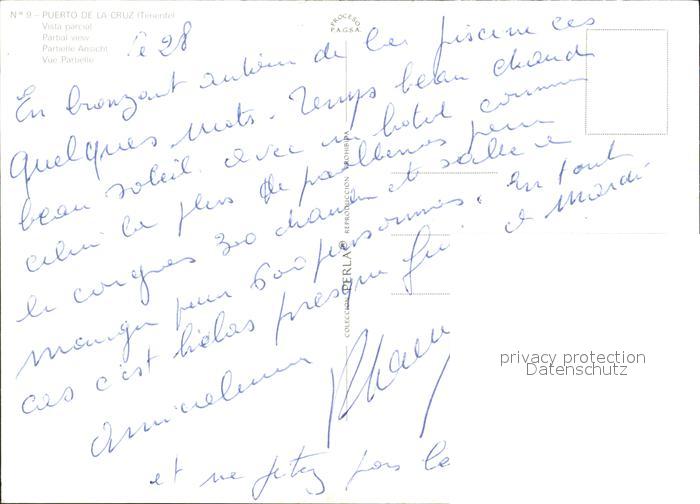 Nº 9 - PUERTO DE LA CRUZ (Tenerife)
Vista parcial
Partial view
Partielle Ansicht
Vue Partielle
PROCESO
P.A.G.S.A.
COLECCION PERLA REPRODUCCION PROHIBIDA
le 28
En bronzant autour de la piscine ces
quelques mots. Temps beau chaud
beau soleil. avec un hotel comme
celui la plus de problemes pour
le congres 300 chambres et salle a
manger pour 600 personnes. En tout
cas c'est hélas presque fini. a Mardi
Amicalement
et ne jetez pas la
privacy protection
Datenschutz